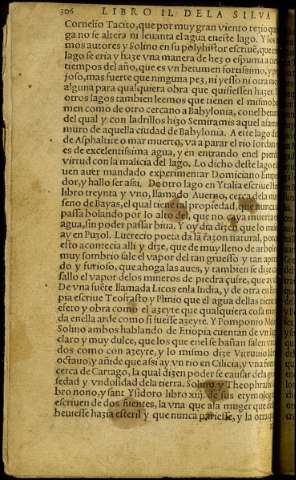 306 LIBRO II. DE LA SILVA
Cornelio Tacito, que por muy gran viento rezio que
ga no se altera ni leuanta el agua en este lago. Y los
mos autores y Solino en su polyhistor escriuē, que en
lago se cria y haze vna manera de hez o espuma a cier
tiempos del año, que es vn betumen fortissimo, y
joso, mas fuerte que ninguna pez, ni yesso ni otra
alguna para qualquiera obra que quisiessen hazer.
otros lagos tambien leemos que tienen el mismo
men como de otro cercano a Babylonia, con el betu
del qual y con ladrillos hizo Semiramis aquel alto
muro de aquella ciudad de Babylonia. A este lago
de Asphaltite o mar muerto, va a parar el rio Iordan
es de excelentissima agua, y en entrando en el
virtud con la malicia del lago. Lo dicho deste lago
uen auer mandado experimentar Domiciano Empe
dor, y hallo ser assi. De otro lago en Ytalia escriue
libro treynta y vno, llamado Auerno, cerca del
seno de Bayas, el qual tiene tal propiedad, que
passa bolando por lo alto del, que no caya muerta
agua, sin poder passar biua. Y oy dia dizen que lo
ay en Puçol. Lucrecio poeta da la razon natural, porq
esto acontecia alli y dize, que de muy lleno de arboles
muy sombrio sale el vapor del tan gruesso y tan
do y furioso, que ahoga las aues, y tambien se dize
sallo el vapor delos mineros de piedra çufre, que ay
De vna fuēte llamada Licos en la India, y de otra en
pia escriue Teofrasto y Plinio que el agua dellas tiene
efeto y obra como el azeyte que qualquiera cosa
da en ella arde como si fuesse azeyte. Y Pomponio
Solino ambos hablando de Etiopia cuentan de vn
claro y muy dulce, que los que en el se bañan salen
dos como con azeyte, y lo mismo dize Vitruuio
octauo, y añide que assi ay vn rio en Cilicia, y vna
cerca de Cartago, la qual dizen poder se causar dela
sedad y vntosidad dela tierra. Solino, y Theophras
bro nono, y sant Ysidoro libro xiij. de sus etymolo
escriuen de dos fuentes, la vna que ala muger que
beuiesse hazia esteril y que nunca pariesse, y la otra